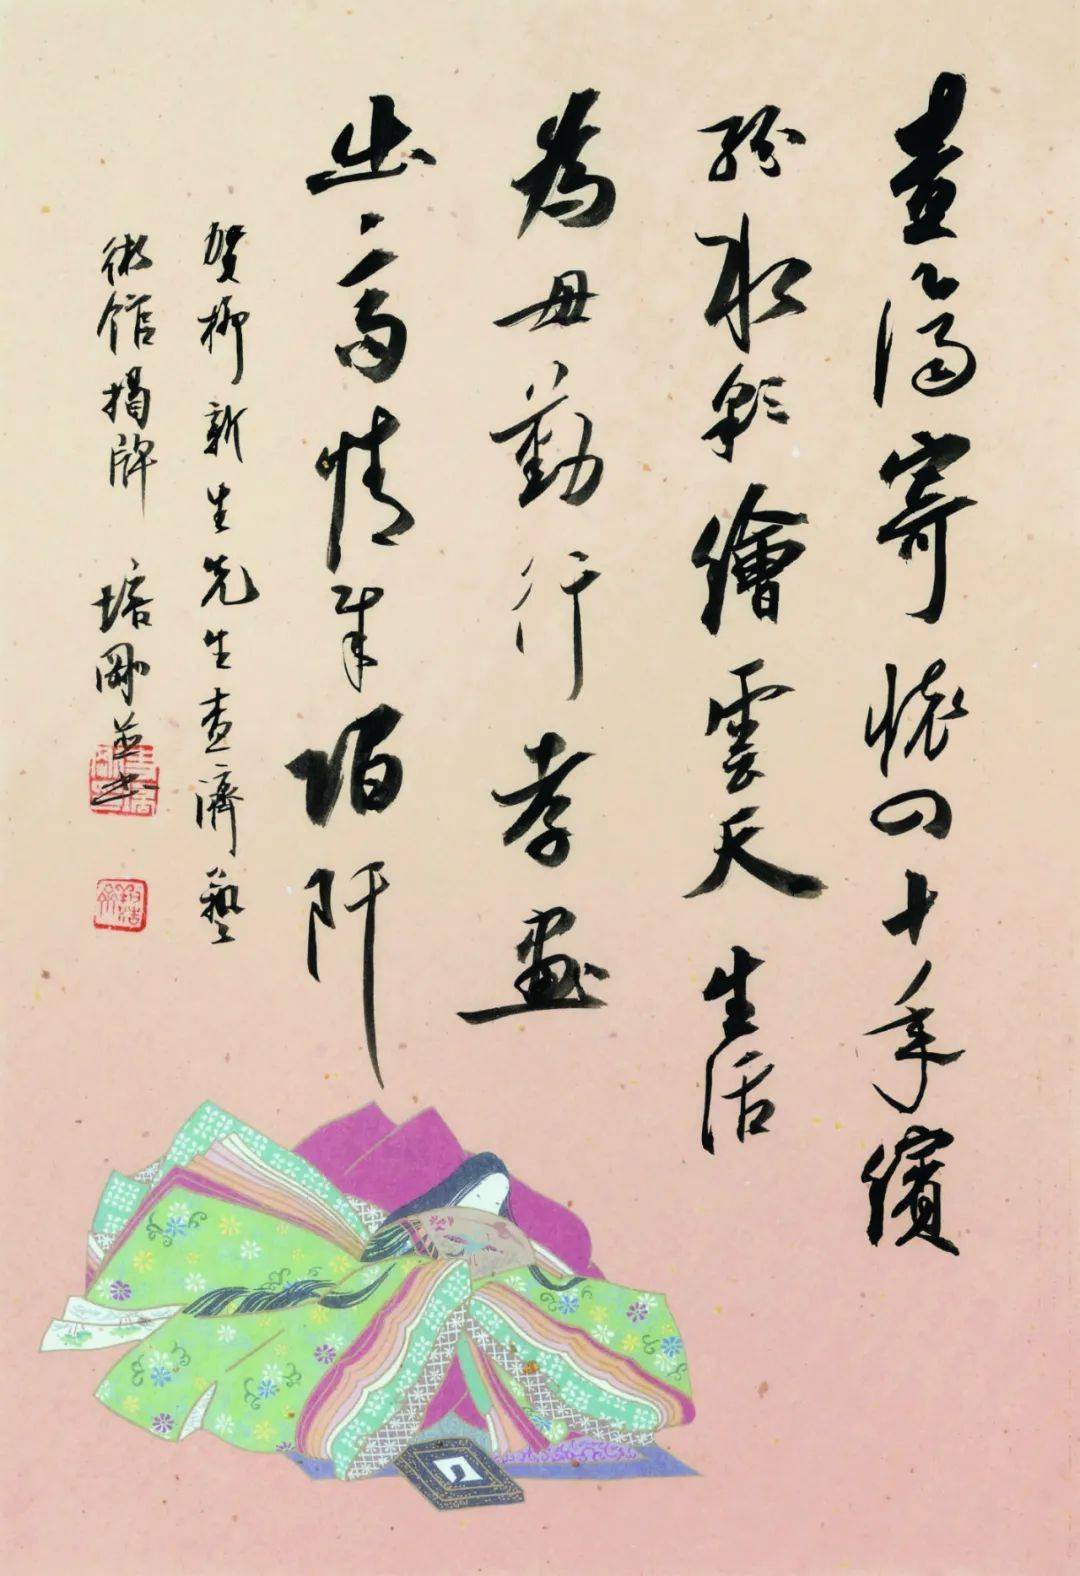 查濟寄懷四十年繽
紛水彩繪雲天生活
為母勤行孝畫
出高情陌阡
賀柳新生先生查濟藝
術館揭牌 培剛並書